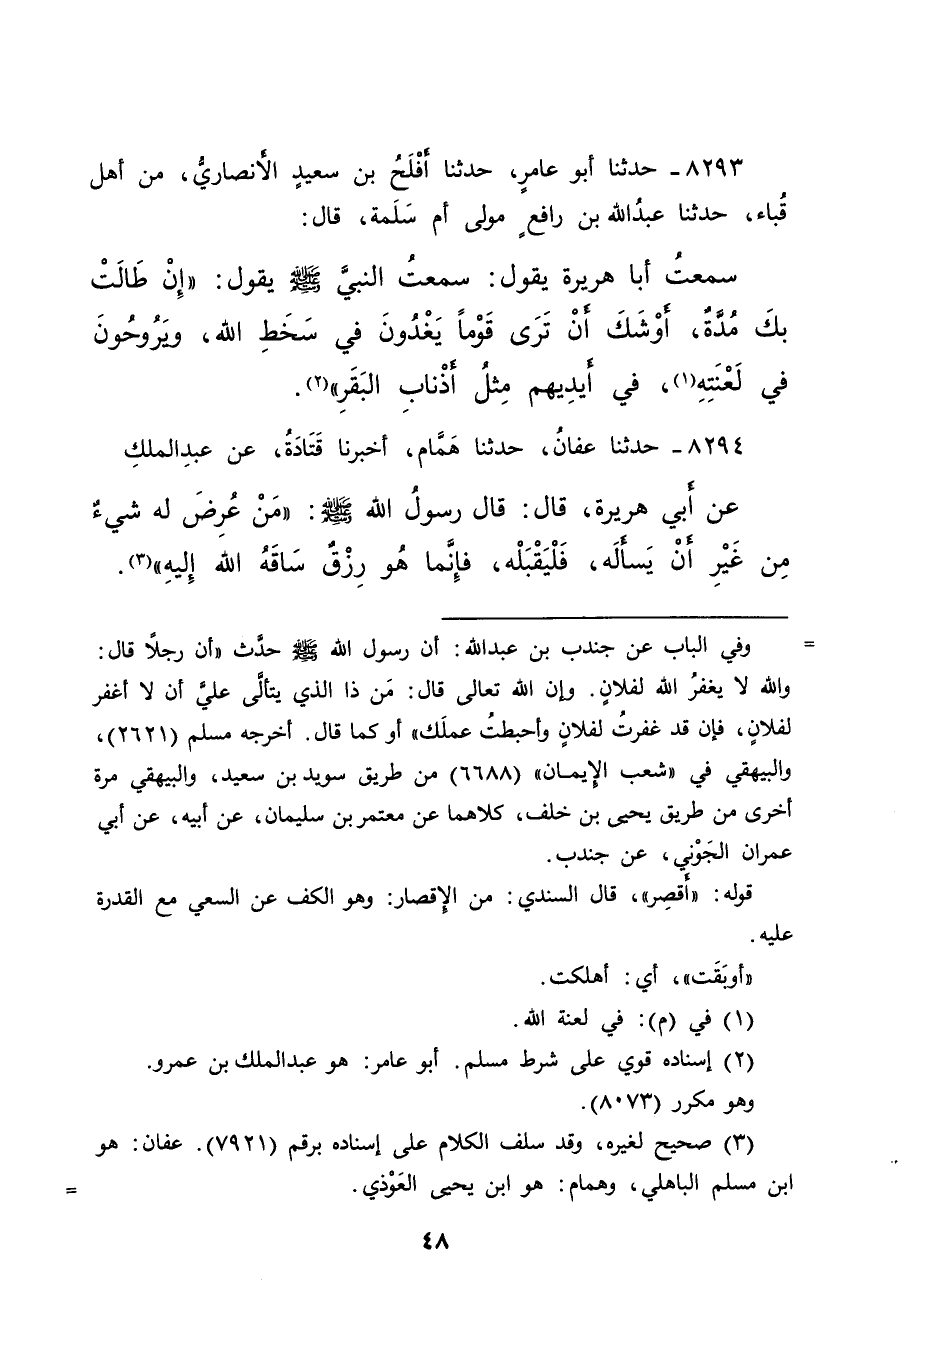 ٨٢٩٣ـ حدثنا أبو عامرٍ، حدثنا أَفْلَحُ بن سعيدٍ الأنصاريُّ، من أهل
قُباء، حدثنا عبدُالله بن رافعٍ مولى أم سَلَمة، قال:
سمعتُ أبا هريرة يقول: سمعتُ النبيَّ ﷺ يقول: «إِنْ طَالَتْ
بِكَ مُدَّةٌ، أَوْشَكَ أَنْ تَرَى قَوْماً يَغْدُونَ في سَخَطِ الله، ويَرُوحُونَ
في لَعْنَتِهِ(١)، في أَيدِيهم مِثلُ أَذْنابِ البَقَرِ»(٢).
٨٢٩٤ـ حدثنا عفانُ، حدثنا هَمَّام، أخبرنا قَتَادَةُ، عن عبدِالملكِ
عن أَبي هريرة، قال: قال رسولُ الله ﷺ: «مَنْ عُرِضَ له شيءٌ
مِن غَيْرِ أَنْ يَسأَلَه، فَلْيَقْبَلْه، فإِنَّما هُو رِزْقٌ سَاقَهُ الله إِليهِ»(٣).
= وفي الباب عن جندب بن عبدالله: أن رسول الله ﷺ حدَّث «أن رجلاً قال:
والله لا يغفرُ الله لفلانٍ. وإن الله تعالى قال: مَن ذا الذي يتألَّى عليَّ أن لا أغفر
لفلانٍ، فإن قد غفرتُ لفلانٍ وأحبطتُ عملَك» أو كما قال. أخرجه مسلم (٢٦٢١)،
والبيهقي في «شعب الإيمان» (٦٦٨٨) من طريق سويد بن سعيد، والبيهقي مرة
أخرى من طريق يحيى بن خلف، كلاهما عن معتمر بن سليمان، عن أبيه، عن أبي
عمران الجَوْني، عن جندب.
قوله: «أَقصِر»، قال السندي: من الإقصار: وهو الكف عن السعي مع القدرة
عليه.
«أوبَقَت»، أي: أهلكت.
(١) في (م): في لعنة الله.
(٢) إسناده قوي على شرط مسلم. أبو عامر: هو عبدالملك بن عمرو.
وهو مكرر (٨٠٧٣).
(٣) صحيح لغيره، وقد سلف الكلام على إسناده برقم (٧٩٢١). عفان: هو
ابن مسلم الباهلي، وهمام: هو ابن يحيى العَوْذي. =
٤٨